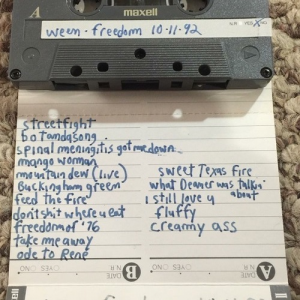 A
maxell
ween - freedom 10-11-92
streetfight
bo tandqsong
spinal meningitis got me down
mango woman
mountain dew (live)
Buckingham green
feed the fire
dont shit where u eat
freedom of '76
take me away
ode to Rene
sweet Texas fire
what Deaner was talkin' about
i still love u
fluffy
creamy ass
B
N.R.
YES
NO
A
N.R.
YES
NO